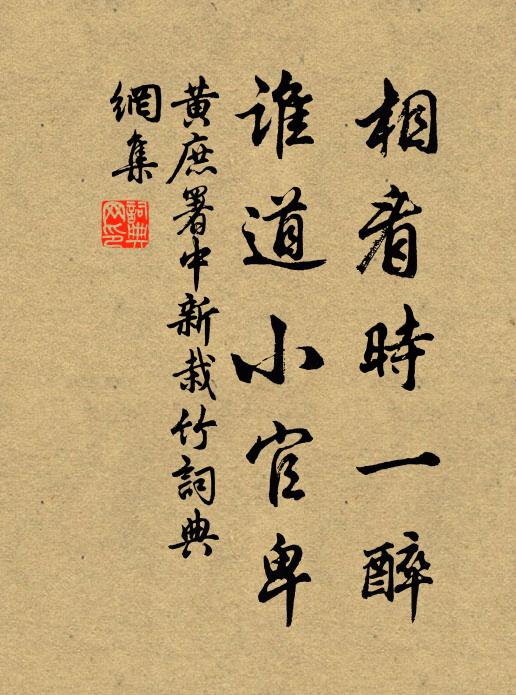 相看時一醉
誰道小官卑
黃庶署中新栽竹詞典
網集
詞典網印